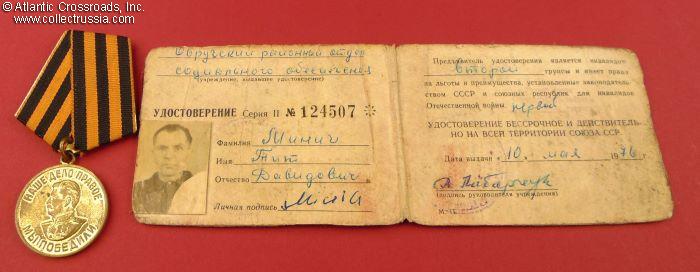 © Atlantic Crossroads, Inc.
www.collectrussia.com
НАШЕ ДЕЛО ПРАВОЕ
МЫ ПОБЕДИЛИ
Овручский районный отдел
социального обеспечения
(учреждение, выдавшее удостоверение)
УДОСТОВЕРЕНИЕ Серия II № 124507 *
Фамилия Минич
Имя Тит
Отчество Давидович
Личная подпись
Предъявитель удостоверения является инвалидом
второй группы и имеет право
на льготы и преимущества, установленные законодатель-
ством СССР и союзных республик для инвалидов
Отечественной войны первой
УДОСТОВЕРЕНИЕ БЕССРОЧНОЕ И ДЕЙСТВИТЕЛЬ-
НО НА ВСЕЙ ТЕРРИТОРИИ СОЮЗА ССР
Дата выдачи «10» мая 1976 г.
(подпись руководителя учреждения)